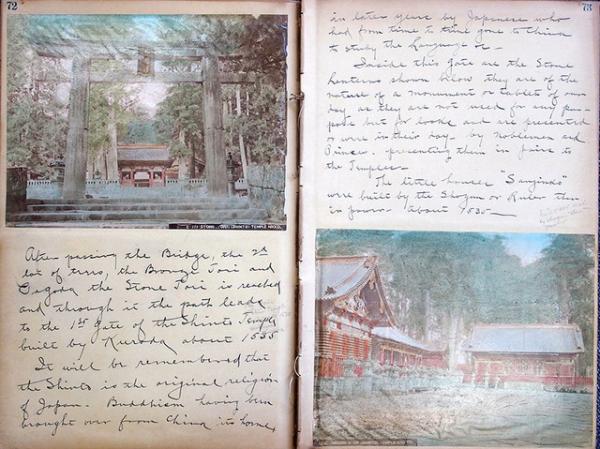 72
STONE
SHINTO TEMPLE NIKKO.
After passing the Bridge, the 2nd
lot of trees, the Bronze Tori and
Pagoda the Stone Tori is reached
and through it the path leads
to the 1st gate of the Shinto Temple
built by Kuroda about 1535
It will be remembered that
the Shinto is the original religion
of Japan - Buddhism having been
brought over from China its home,
73
in later years by Japanese who
had from time to time gone to China
to study the language &c -
Inside this gate are the Stone
Lanterns shown below they are of the
nature of a monument or tablet of our
day as they are not used for any pur-
pose but for looks and are presented
or were in their day by noblemen and
Prince. presenting them in pairs to
the Temples -
The little houses "Sanjinko"
were built by the Shogun or Ruler then
in favor - about 1535 -
SHINTO TEMPLE